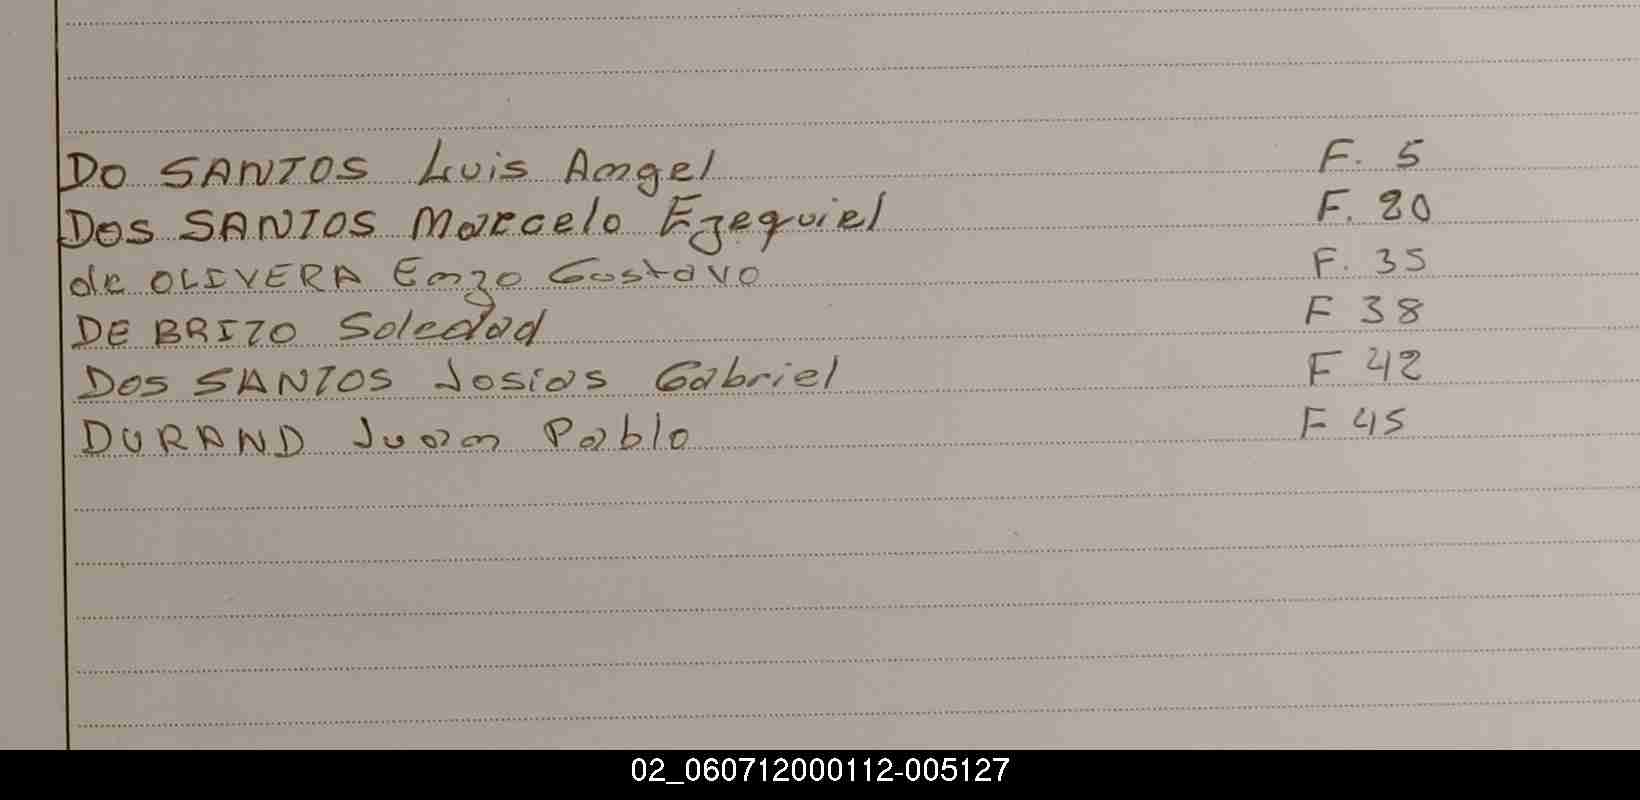 DO SANTOS Luis Angel F. 5
DOS SANTOS Marcelo Ezequiel F. 20
de OLIVERA Enzo Gustavo F. 35
DE BRITO Soledad F 38
DOS SANTOS Josias Gabriel F 42
DURAND Juan Pablo F 45
02_060712000112-005127